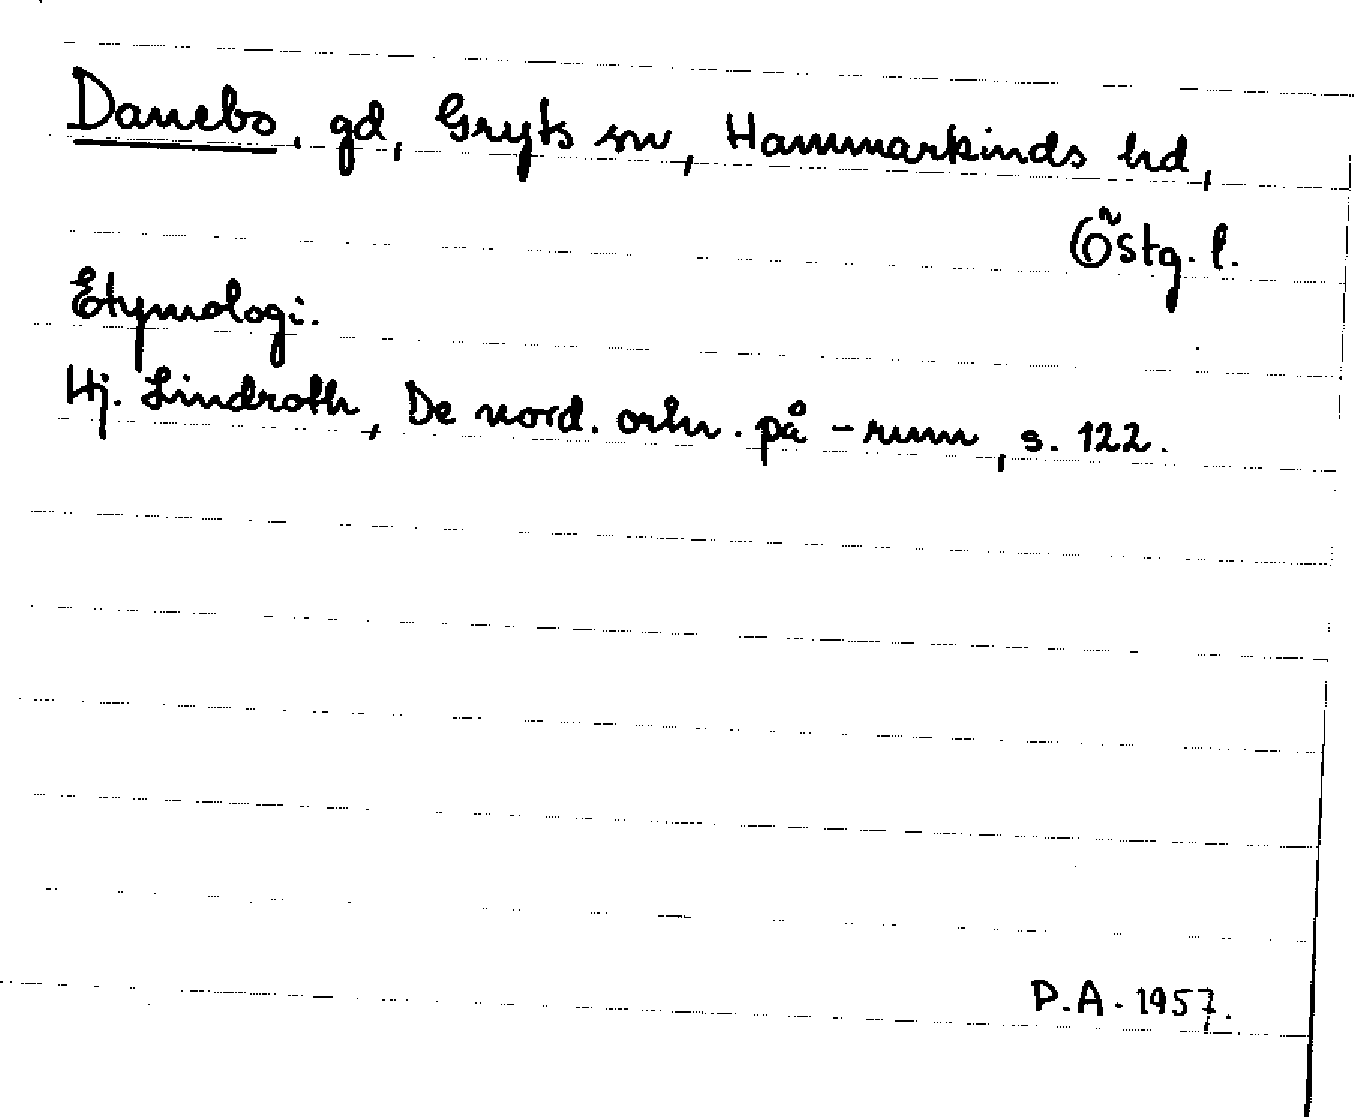 Danebo, gd, Gryts sn, Hammarkinds hd,
Östg. l.
Etymologi.
Hj. Lindroth, De nord. ortn. på -rum, s. 122.
D.A. 1957.